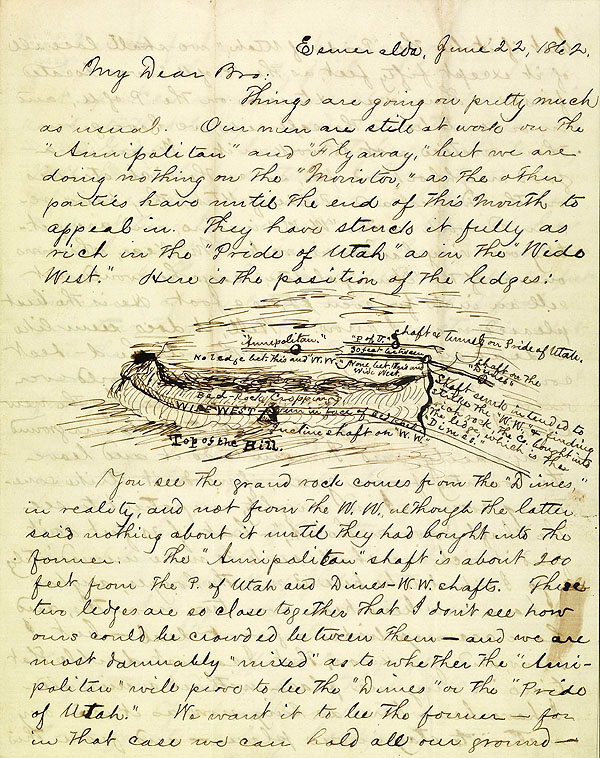 Esmeralda, June 22, 1862.
My Dear Bro:
Things are going on pretty much
as usual. Our men are still at work on the
"Annipolitan" and "Flyaway," but we are
doing nothing on the "Monitor," as the other
parties have until the end of this month to
appeal in. They have struck it fully as
rich in the "Pride of Utah" as in the "Wide
West." Here is the position of the ledges:
"Annipolitan."
No ledge bet. this and W.W.
"P of U."
30 feet between
None bet. this and
Wide West.
shaft & tunnel on Pride of Utah.
shaft on the
"Dimes"
Shaft sunk intended to
strike the W.W. & finding
rich rock the Co. bought into
the ledge, which is the
Dimes.
Bed-Rock Croppings
WIDE WEST
Incline shaft on "W.W."
Top of the Hill.
You see the grand rock comes from the "Dimes"
in reality, and not from the W.W., although the latter
said nothing about it until they had bought into the
former. The "Annipolitan" shaft is about 200
feet from the P. of Utah and Dimes-W.W. shafts. These
two ledges are so close together that I don't see how
ours could be crowded between them — and we are
most damnably "mixed" as to whether the "Anni-
politan" will prove to be the "Dimes" or the "Pride
of Utah." We want it to be the former — for
in that case we can hold all our ground —